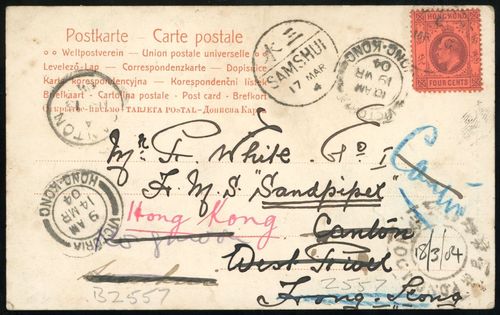 Postkarte - Carte postale
Weltpostverein — Union postale universelle
Levelező-Lap — Correspondenzkarte — Dopisnice
Karta korespondencyjna — Korespondenční lístek
Brefkort — Cartolina postale — Post card — Briefkaart
TARJETA POSTAL
HONG KONG
FOUR CENTS
三水
SAMSHUI
17 MAR
4
HONG-KONG
04
CANTON
HONG-KONG
04
14 MR
9 AM
VICTORIA
Mr F. White
H.M.S "Sandpiper"
Hong Kong
Canton
West River
Hong-Kong
Canton
18/3/04
B2557
2557